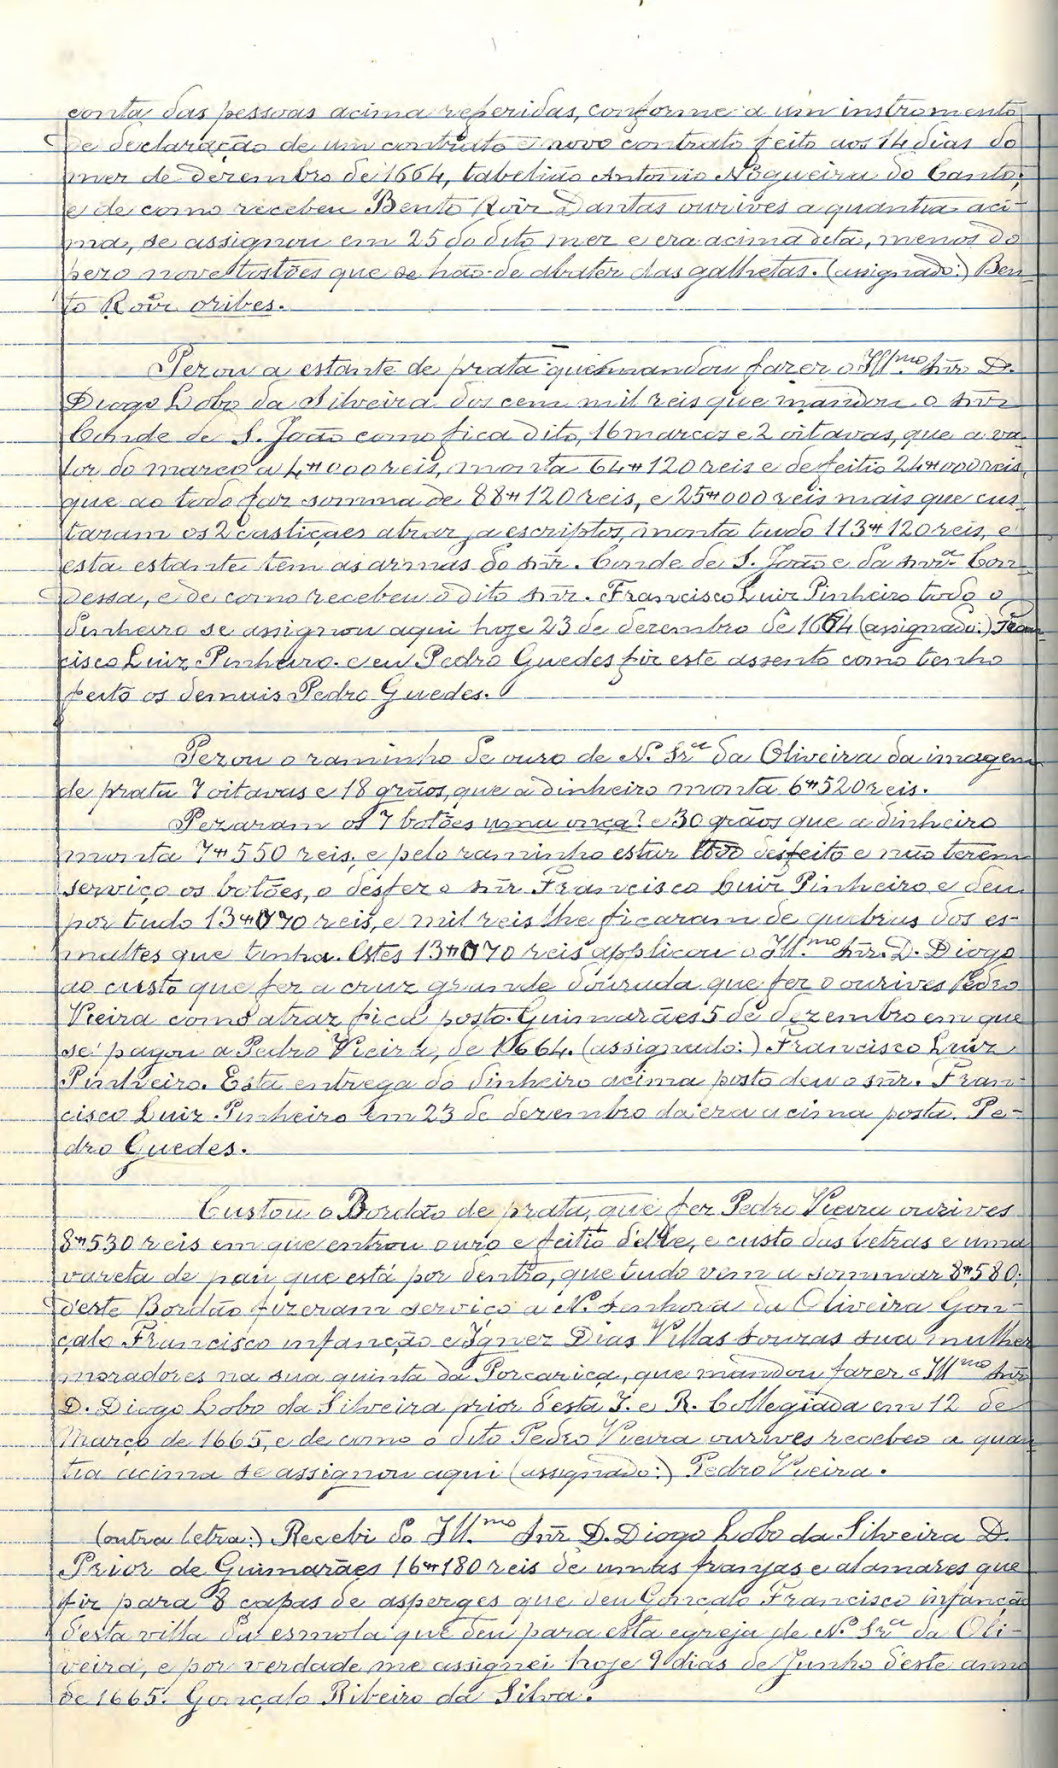 conta das pessoas acima referidas, conforme a um instromento
de declaração de um contrato e novo contrato feito aos 14 dias do
mez de dezembro de 1664, tabelião Antonio Nogueira do Canto,
e de como recebeu Bento Roiz Dantas ourives a quantia aci-
ma, se assignou em 25 do dito mez e era acima dita, menos do
pezo nove tostões que se hão-de abater das galhetas. (assignado:) Ben-
to Roiz oribes.
Pezou a estante de prata que mandou fazer o Ill.mo Snr D.
Diogo Lobo da Silveira dos cem mil reis que mandou o Snr
Conde de S. João como fica dito, 16 marcos e 2 oitavas, que a va-
lor do marco a 4#000 reis, monta 64#120 reis e de feitio 24#000 reis,
que ao todo faz somma de 88#120 reis, e 25#000 reis mais que cus-
taram os 2 castiçaes atraz, a escriptos, monta tudo 113#120 reis, e
esta estante tem as armas do Snr. Conde de S. João e da Snr.a Con-
dessa, e de como recebeu o dito Snr. Francisco Luiz Pinheiro todo o
dinheiro se assignou aqui hoje 23 de dezembro de 1664 (assignado:) Fran-
cisco Luiz Pinheiro. e eu Pedro Guedes fiz este assento como tenho
feito os demais Pedro Guedes.
Pezou o raminho de ouro de N. Sr.a da Oliveira da imagem
de prata 7 oitavas e 18 grãos, que a dinheiro monta 6#520 reis.
Pezaram os 7 botões uma onça? e 30 grãos que a dinheiro
monta 7#550 reis, e pelo raminho estar desfeito e não terem
serviço os botões, o desfez o Snr. Francisco Luiz Pinheiro e deu
por tudo 13#070 reis, e mil reis lhe ficaram de quebras dos es-
maltes que tinha. Estes 13#070 reis applicou o Ill.mo Snr. D. Diogo
ao custo que fez a cruz grande dourada que fez o ourives Pedro
Vieira como atraz fica posto. Guimarães 5 de dezembro em que
se pagou a Pedro Vieira, de 1664. (assignado:) Francisco Luiz
Pinheiro. Esta entrega do dinheiro acima posto deu o snr. Fran-
cisco Luiz Pinheiro em 23 de dezembro da era acima posta. Pe-
dro Guedes.
Custou o Bordão de prata, que fez Pedro Vieira ourives
8#530 reis em que entrou ouro e feitio delle, e custo das letras e uma
vareta de pau que está por dentro, que tudo vem a sommar 8#580;
d'este Bordão fizeram serviço a N. Senhora da Oliveira Gon-
çalo Francisco infanção e Ignez Dias Villas Souzas sua mulher
moradores na sua quinta da Porcariça, que mandou fazer o Ill.mo Snr
D. Diogo Lobo da Silveira prior d'esta I. e R. Collegiada em 12 de
Março de 1665, e de como o dito Pedro Vieira ourives recebeo a quan-
tia acima se assignou aqui (assignado:) Pedro Vieira.
(outra letra:) Recebi do Ill.mo Snr D. Diogo Lobo da Silveira D.
Prior de Guimarães 16#180 reis de umas franjas e alamares que
fiz para 8 capas de asperges que deu Gonçalo Francisco infanção
d'esta villa da esmola que deu para esta egreja de N. Sr.a da Oli-
veira, e por verdade me assignei hoje 9 dias de Junho d'este anno
de 1665. Gonçalo Ribeiro da Silva.